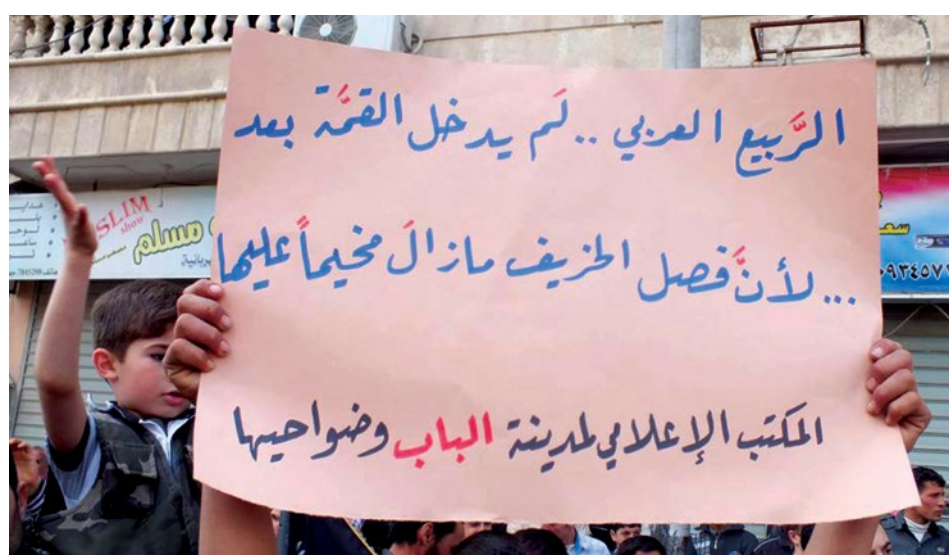 الرَّبيع العربي .. لَم يدخل القمَّة بعد
... لأنَّ فصل الخريف مازالَ مخيماً عليها
المكتب الإعلامي لمدينة الباب وضواحيها
MUSLIM
show
مسلم
سعد